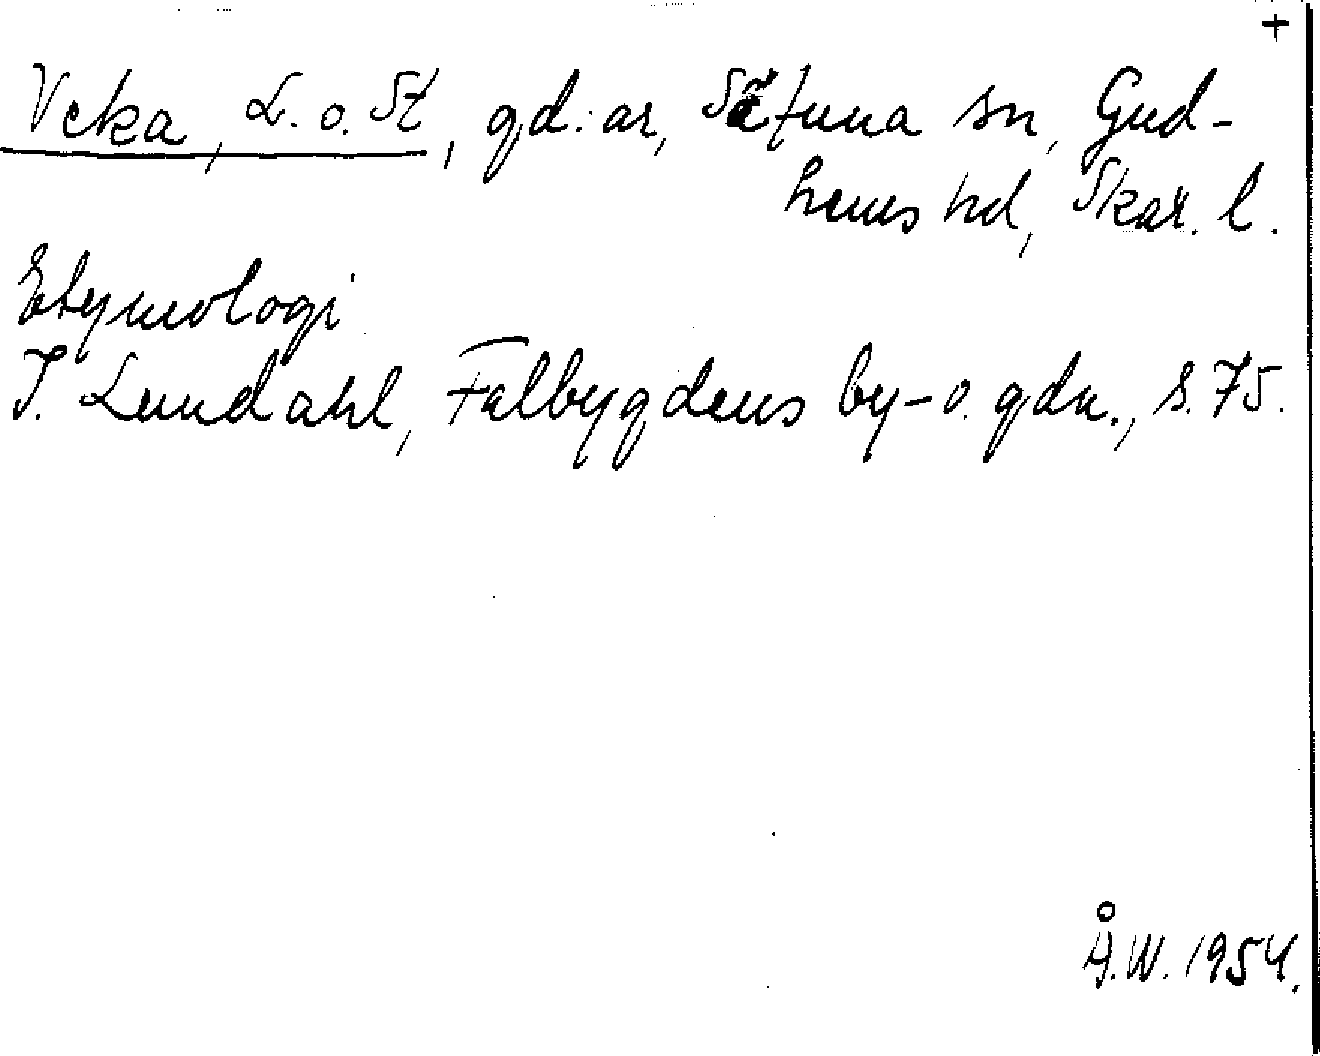 +
Veka, L. o. St, gd:ar, Sätuna sn, Gud-
hems hd, Skar. l.
Etymologi
I. Lundahl, Falbygdens by- o. gdn., s. 75.
Å.W. 1954.